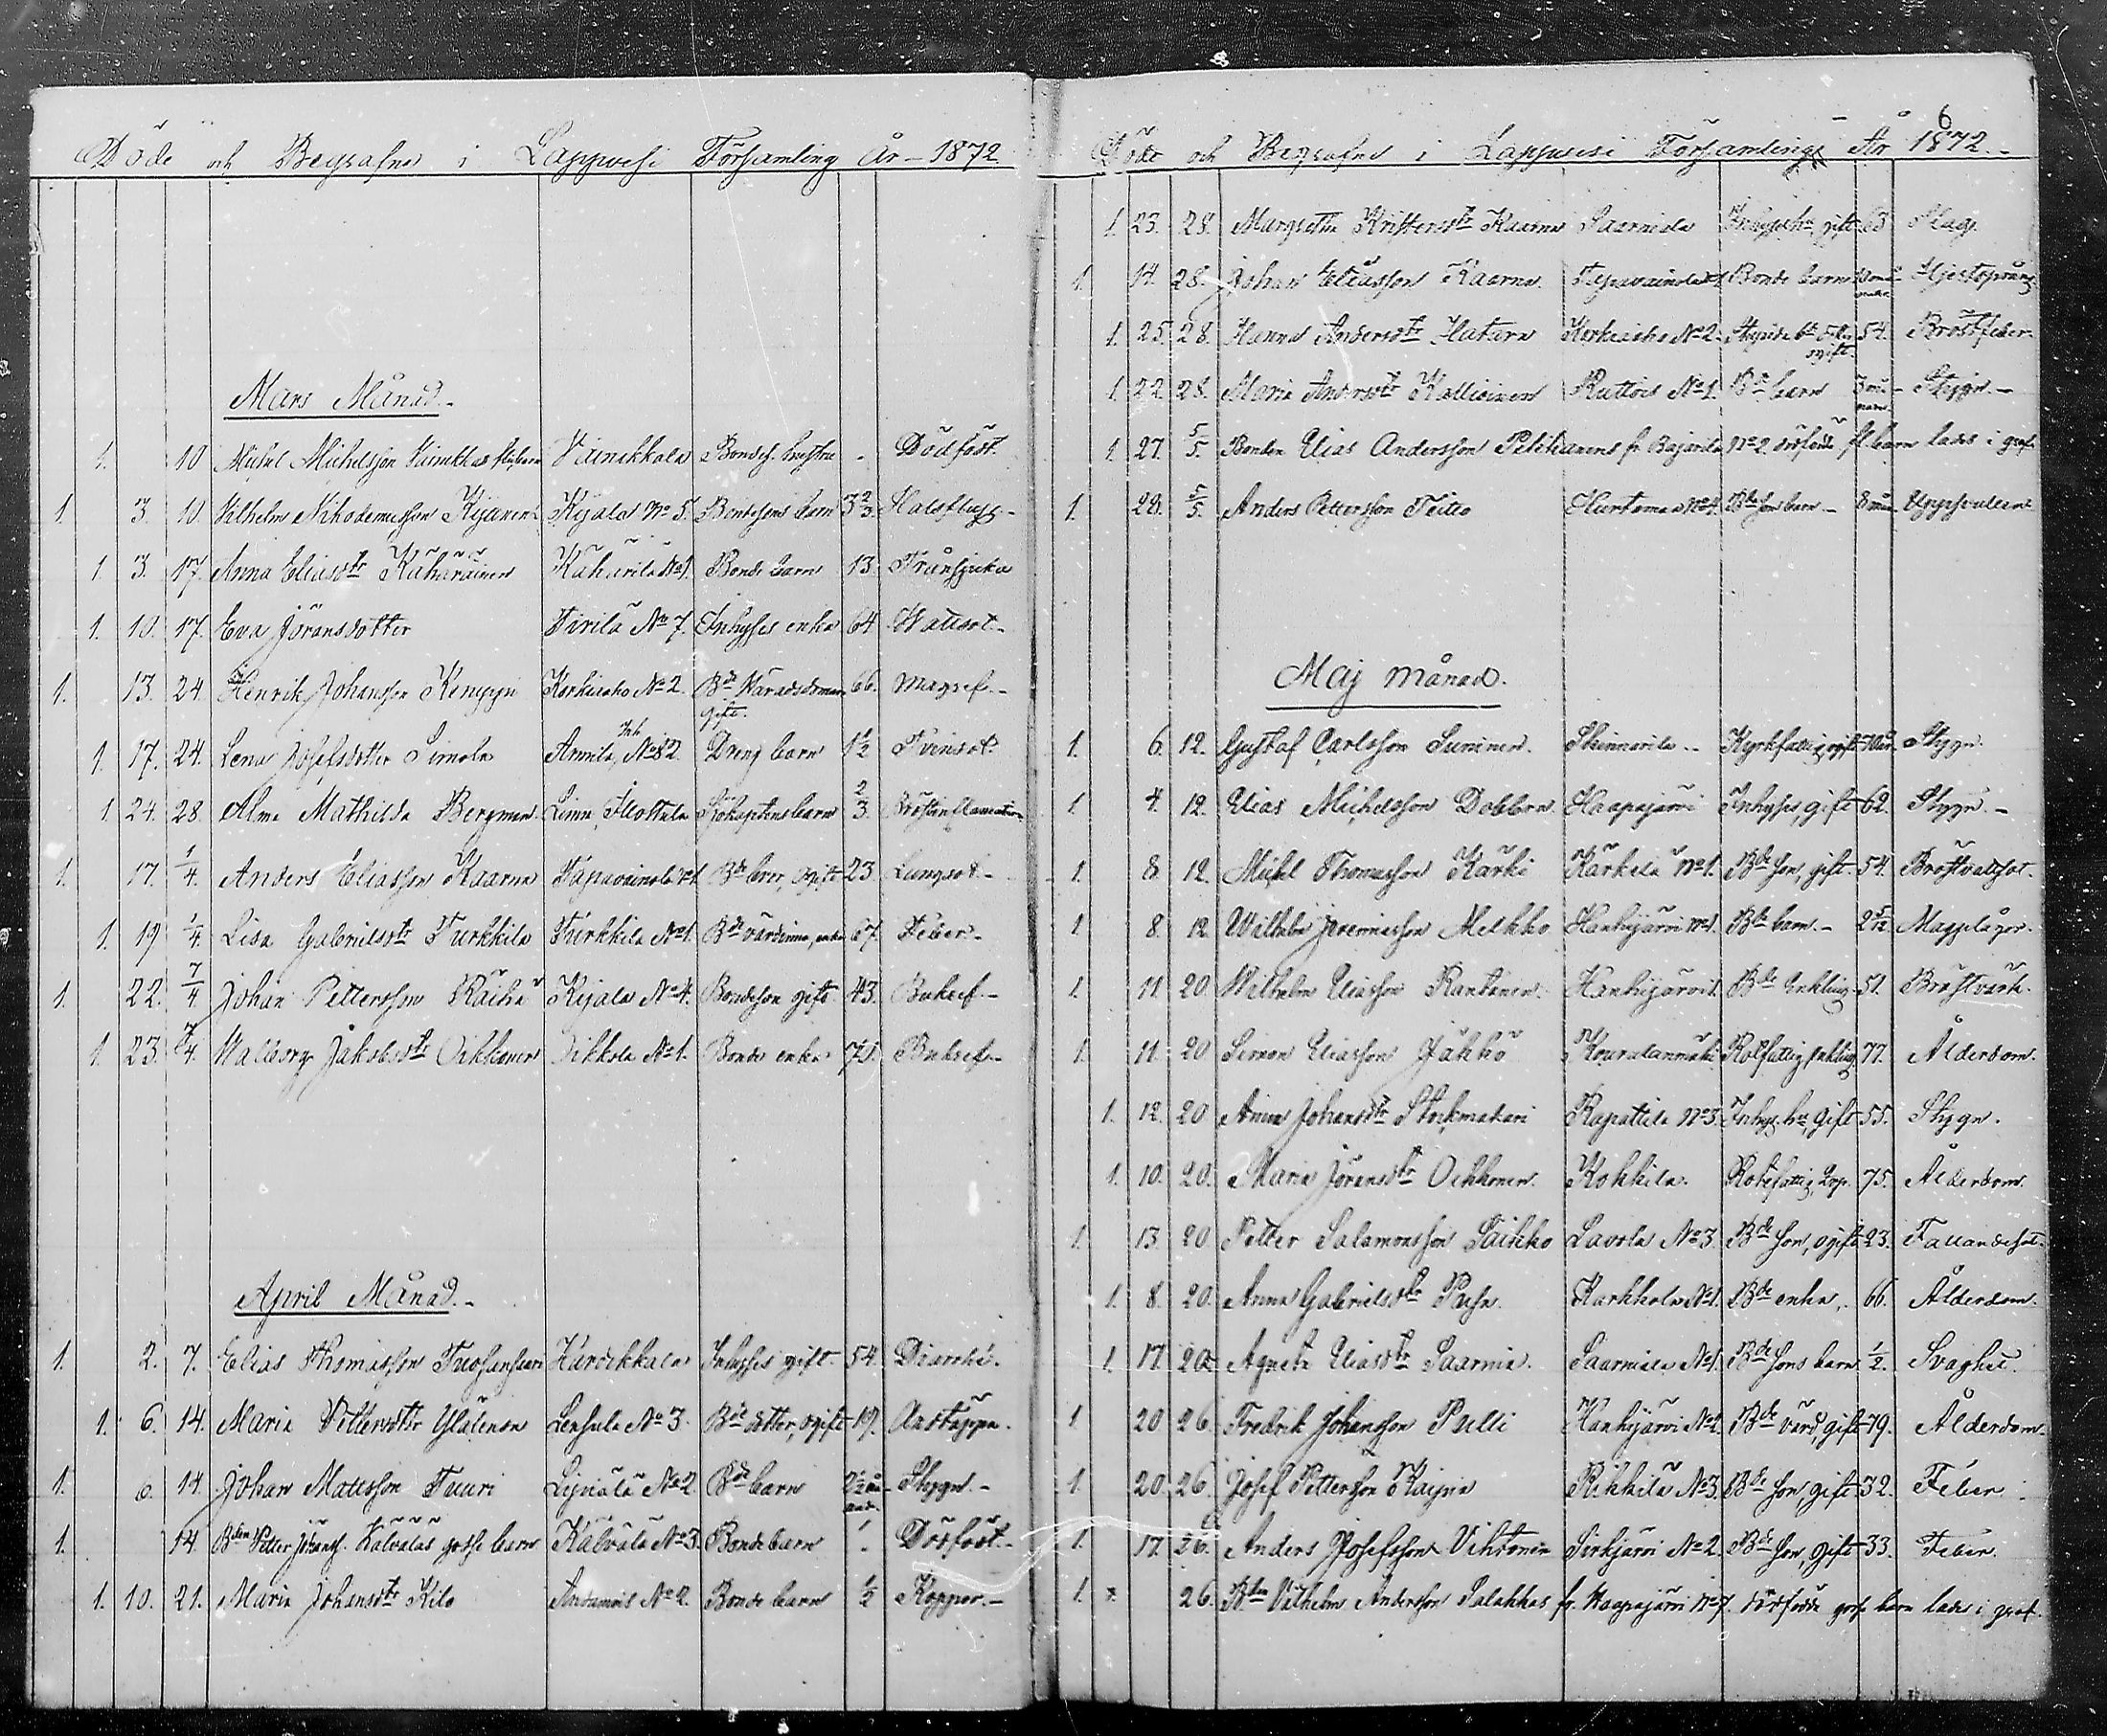 Döde och Begrafne i Lappvesi Församling År 1872
Mars Månad.
1. 10 Michel Michelsson Vainikkalas barn Vainikkala Dödfödt.
1. 3. 10. Vilhelm Nikodemusson Kijanen Kijala No 5. Bondesons barn 3 2/3 Halsfluss.
1. 3. 17. Anna Eliasdtr Kähäräinen Kähärilä No 1. Bonde barn 13. Trånsjuka
1. 10. 17. Eva Jöransdotter Tirilä No 7. Inhyses enka 64 Wattsot.
1. 13. 24. Henrik Johansson Kemppi Korkiaho No 2. Bde gift. 66. Magref.
1. 17. 24. Lena Josefsdotter Simola Armila, No 2. Dreng barn 1 1/2 Tvinsot.
1. 24. 28. Alma Mathilda Bergman Sjökaptens barn 2/3. Bröstinflammation
1. 17. 1/4. Anders Eliasson Kaarna Tapavainola No 1. Bde bror, ogift 23 Lungsot.
1. 19 1/4. Lisa Gabrielsdtr Turkkila Turkkila No 1. Bde värdinna, enka 67. Feber.
1. 22. 7/4 Johan Pettersson Räihä Kijala No 4. Bondeson gift 43. Bukref.
1. 23. 7/4. Walborg Jakobsdtr Oikkonen Oikkola No 1. Bonde enka 70. Bukref.
April Månad.
1. 2. 7. Elias Thomasson Tuosanhaara Hurdikkala Inhyses gift. 54. Diarrhé.
1. 6. 14. Maria Pettersdtr Ylätinen Lensula No 3. Bde dotter, ogift 19. Andtäppa.
1. 6. 14. Johan Matsson Tuuri No 2. Bde barn 2 1/2 månader. Stygn.
1. 14. Bden Petter Jöranss. Kälväläs gosse barn Kälvälä No 3. Bonde barn Dödfödt.
1. 10. 21. Maria Johansdtr Kilo No 2. Bonde barn 1/2 Koppor.
6
Döde och Begrafne i Lappvesi Församling År 1872.
1. 23. 28. Margretha Kristersdtr Kaarna Saarniala gift 63 Slag.
1. 14. 28. Johan Eliasson Kaarna Tapavainola No 1 Bonde barn Hjertsprång
1. 25. 28. Hanna Andersdtr Hatara Korkiaho No 2. ogift. 54. Bröstfeber.
1. 22. 28. Maria Andersdtr Kallioinen Ruttois No 1. Bde barn 3 mån. Stygn.
1. 27. 5/5. Bonden Elias Andersson Pelitianens fr. No 2 dödfödde fl. barn lades i graf.
1. 28. 5/5. Anders Pettersson Teitto Hurtama No 4. Bde son barn. 8 mån.
Maj månad.
1. 6. 12. Gustaf Carlsson Suninen. Skinnarila Kyrkfattig, gift 70 Stygn.
1. 4. 12. Elias Michelsson Dobbern Haapajärvi Inhyses, gift 62. Stygn.
1. 8 12. Michel Thomasson Kärki Kärkelä No 1. Bde son, gift. 54. Bröstvattsot.
1 8. 12. Wilhelm Jeremiasson Melkko Hanhijärvi No 1. Bde barn. 2 5/12 Magplågor.
1. 11. 20 Wilhelm Eliasson Rantanen Hanhijärvi 1. Bde Enkling 51. Bröstvärk.
1. 11. 20 Simon Eliasson Jäkkö Kouralanmäki Rotfattig, Enkling 77. Ålderdom.
1. 12. 20 Anna Johansdtr Stockmakari Rapattila No 3. Inhys. hu, gift 55. Stygn.
1. 10. 20. Maria Jöransdtr Oikkonen Kokkila. Rotefattig 75. Ålderdom.
1. 13. 20 Petter Salamonsson Saikko Lavola No 3. Bde son, ogift 23. Fallandesot.
1. 8. 20. Anna Gabrielsdtr Karhkola No 1. Bde enka, 66. Ålderdom.
1. 17. 20. Agneta Eliasdtr Saarnia. Saarniala No 1. Bde Sons barn 1/2. Svaghet.
1 20 26. Fredrik Johansson Pulli Hanhijärvi No 2. Bde värd, gift 79. Ålderdom.
1 20. 26. Josef Pettersson Kaipia Rikkilä No 3. Bde son, gift 32. Feber.
1. 17. 26. Anders Josefsson Vihtonen Sirkjärvi No 2. Bde son, gift 33. Feber.
1. 26. Bden Vilhelm Andersson Salakkas fr. Haapajärvi No 7. dödfödde gosse barn lades i graf.